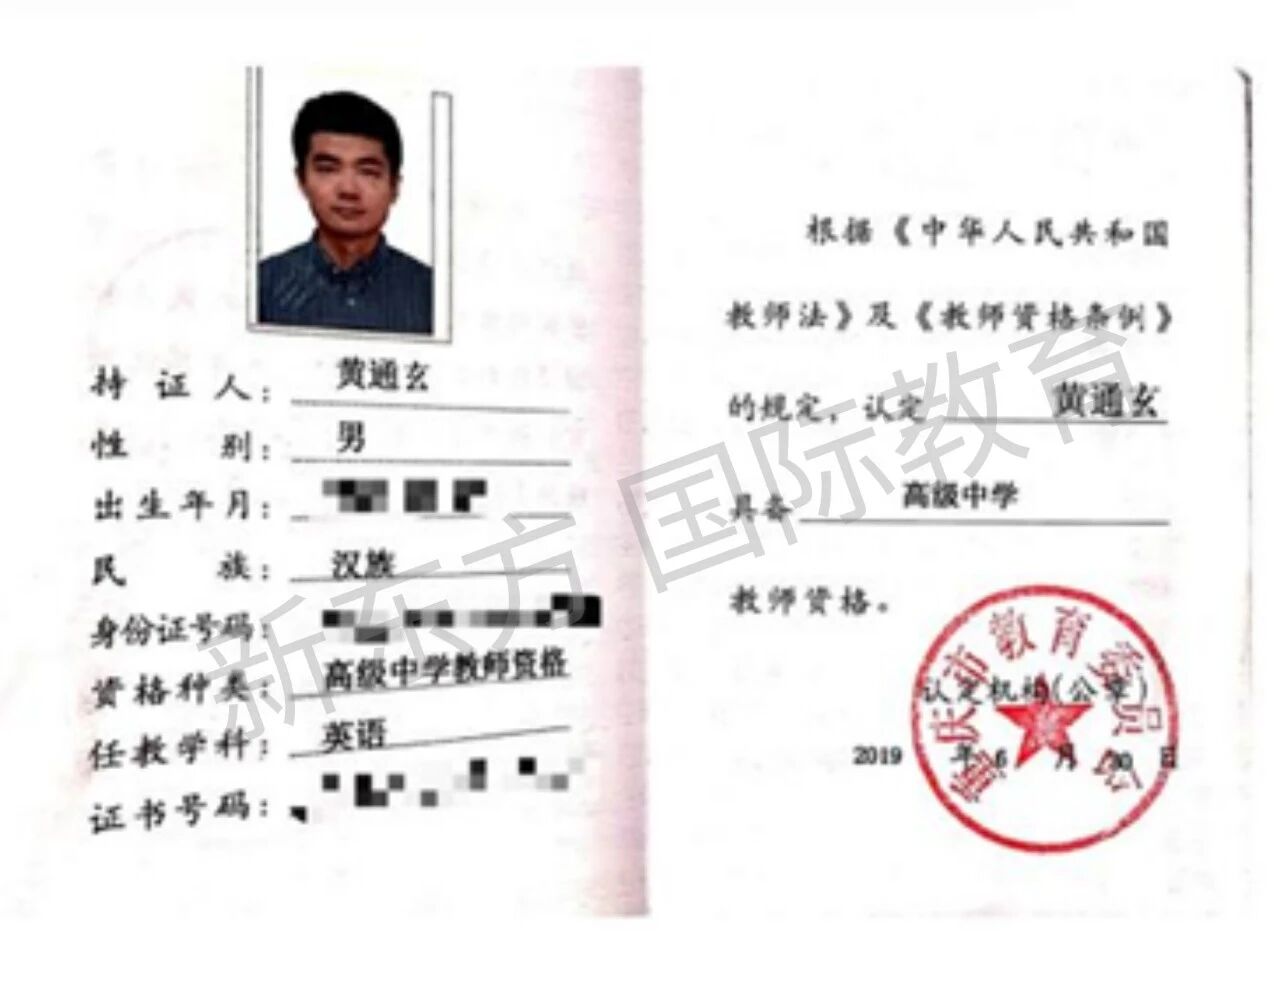 持证人：黄通玄
性别：男
出生年月：
民族：汉族
身份证号码：
资格种类：高级中学教师资格
任教学科：英语
证书号码：
根据《中华人民共和国
教师法》及《教师资格条例》
的规定，认定 黄通玄
具备 高级中学
教师资格。
重庆市教育委员会
认定机构(公章)
2019 年 6 月 30 日
新东方国际教育